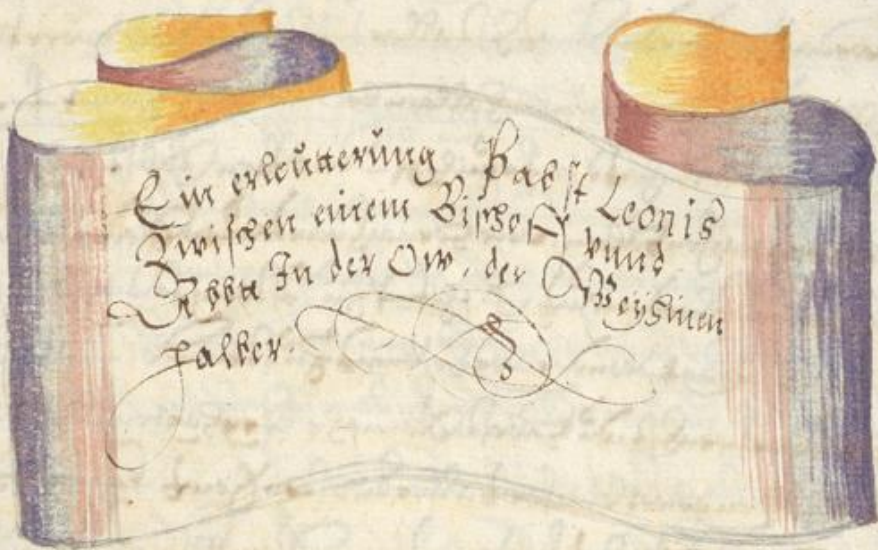 Ein erleütterüng Pabst Leonis
Zwischen einem Bischoff vnnd
Abbt In der Ow, der Weyhinen
halber.